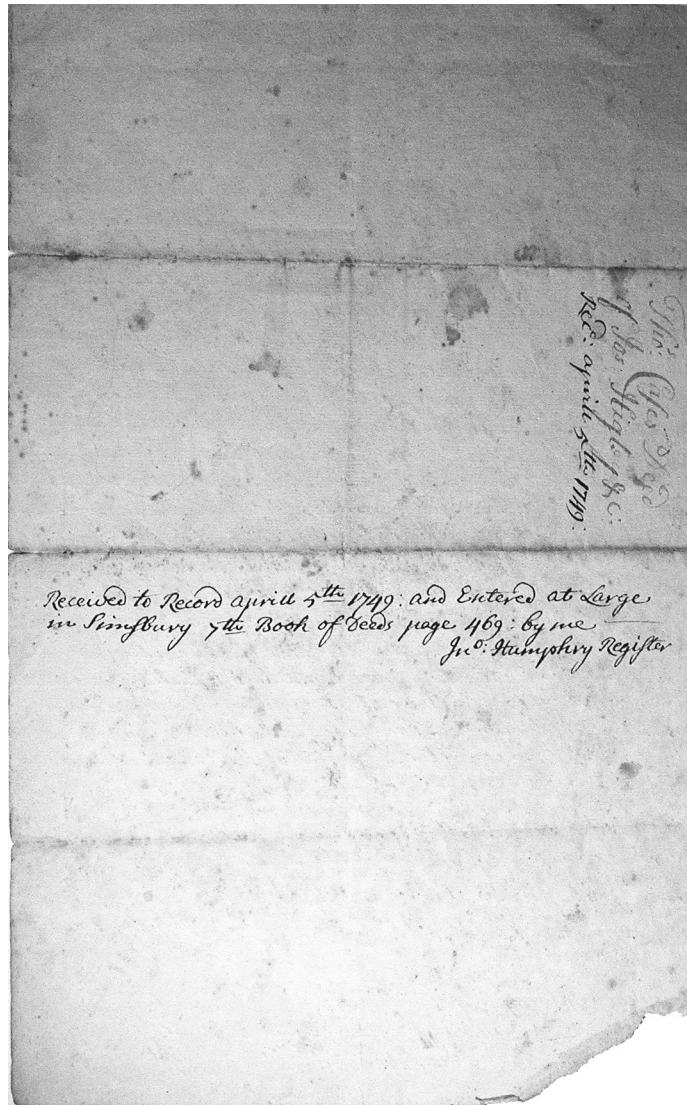 Tho:s Cases Deed
of Jos: Higley &c:
Recd: aprill 5th 1749:
Received to Record aprill 5th 1749: and Entered at Large
in Simsbury 7th Book of Deeds page 469: by me
Jno: Humphry Register